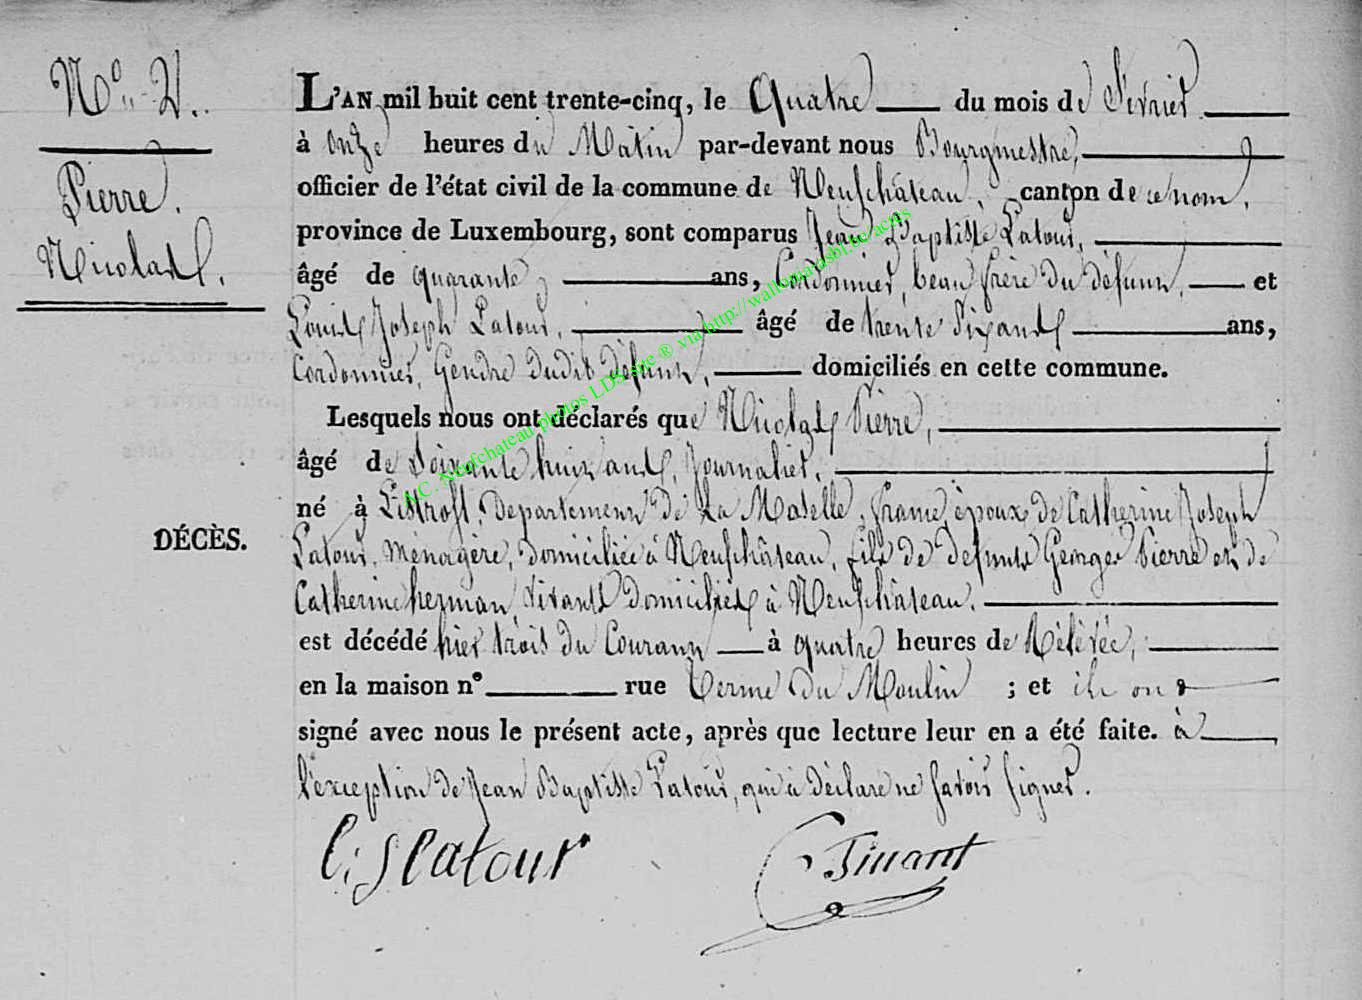 N° 4.
Pierre.
Nicolas.
DÉCÈS.
L'AN mil huit cent trente-cinq, le Quatre du mois de Fevrier
à Onze heures du Matin par-devant nous Bourgmestre,
officier de l'état civil de la commune de Neufchâteau, canton de ce nom,
province de Luxembourg, sont comparus Jean Baptiste Latour,
âgé de quarante ans, Cordonnier, beau frère du défunt, et
Louis Joseph Latour, âgé de trente Six ans ans,
Cordonnier, Gendre dudit défunt, domiciliés en cette commune.
Lesquels nous ont déclarés que Nicolas Pierre,
âgé de Soixante huit ans, Journalier,
né à Listroff, Departement de La Moselle, france époux de Catherine Joseph
Latour, ménagère, domiciliée à Neufchâteau, fils de defunts George Pierre et de
Catherine herman vivants domiciliés à Neufchâteau.
est décédé hier trois du Courant à quatre heures de Rélévée,
en la maison n° rue Terme du Moulin ; et ils ont
signé avec nous le présent acte, après que lecture leur en a été faite. à
l'exception de Jean Baptiste Latour, qui à déclaré ne savoir signer.
L. J Latour
AC. Neufchateau photos LDS site ® via http://wallonia.bf.be/actes